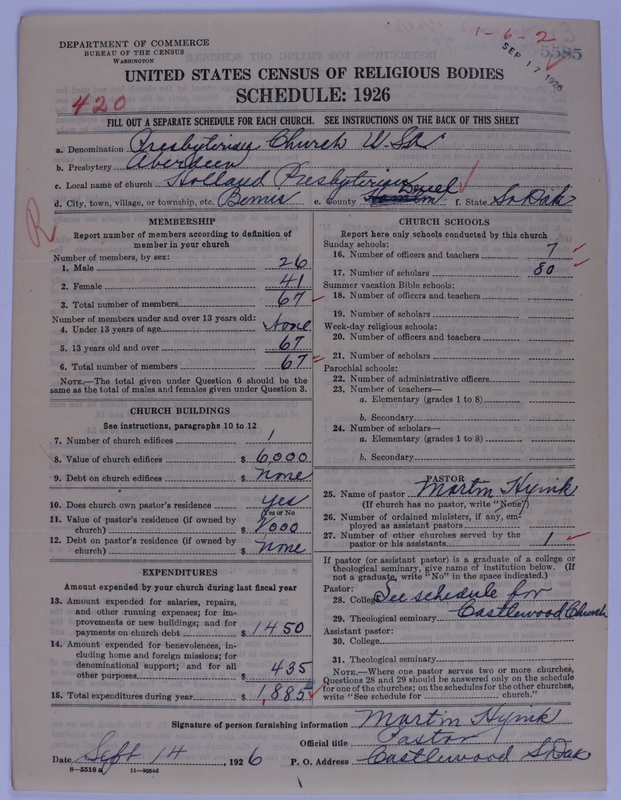 1-6-2
DEPARTMENT OF COMMERCE
BUREAU OF THE CENSUS
WASHINGTON
SEP 17 1926
5585
UNITED STATES CENSUS OF RELIGIOUS BODIES
SCHEDULE: 1926
420
FILL OUT A SEPARATE SCHEDULE FOR EACH CHURCH. SEE INSTRUCTIONS ON THE BACK OF THIS SHEET
a. Denomination Presbyterian Church U.S.A.
b. Presbytery Aberdeen
c. Local name of church Holland Presbyterian
d. City, town, village, or township, etc. Bemis e. County Deuel f. State So Dak
R
MEMBERSHIP
Report number of members according to definition of member in your church
Number of members, by sex:
1. Male 26
2. Female 41
3. Total number of members 67
Number of members under and over 13 years old:
4. Under 13 years of age None
5. 13 years old and over 67
6. Total number of members 67
NOTE.—The total given under Question 6 should be the same as the total of males and females given under Question 3.
CHURCH BUILDINGS
See instructions, paragraphs 10 to 12
7. Number of church edifices 1
8. Value of church edifices $ 6,000
9. Debt on church edifices $ none
10. Does church own pastor's residence yes
(Yes or No)
11. Value of pastor's residence (if owned by
church) $ 7000
12. Debt on pastor's residence (if owned by
church) $ none
EXPENDITURES
Amount expended by your church during last fiscal year
13. Amount expended for salaries, repairs,
and other running expenses; for im-
provements or new buildings; and for
payments on church debt $ 1450
14. Amount expended for benevolences, in-
cluding home and foreign missions; for
denominational support; and for all
other purposes $ 435
15. Total expenditures during year $ 1,885
CHURCH SCHOOLS
Report here only schools conducted by this church
Sunday schools:
16. Number of officers and teachers 7
17. Number of scholars 80
Summer vacation Bible schools:
18. Number of officers and teachers
19. Number of scholars
Week-day religious schools:
20. Number of officers and teachers
21. Number of scholars
Parochial schools:
22. Number of administrative officers
23. Number of teachers—
a. Elementary (grades 1 to 8)
b. Secondary
24. Number of scholars—
a. Elementary (grades 1 to 8)
b. Secondary
PASTOR
25. Name of pastor Martin Hyink
(If church has no pastor, write "None")
26. Number of ordained ministers, if any, em-
ployed as assistant pastors
27. Number of other churches served by the
pastor or his assistants 1
If pastor (or assistant pastor) is a graduate of a college or
theological seminary, give name of institution below. (If
not a graduate, write "No" in the space indicated.)
Pastor:
28. College See schedule for
29. Theological seminary Castlewood Church
Assistant pastor:
30. College
31. Theological seminary
NOTE.—Where one pastor serves two or more churches,
Questions 28 and 29 should be answered only on the schedule
for one of the churches; on the schedules for the other churches,
write "See schedule for church."
Signature of person furnishing information Martin Hyink
Official title Pastor
Date Sept 14, 1926 P. O. Address Castlewood S Dak
8—5518 a 11—9054d